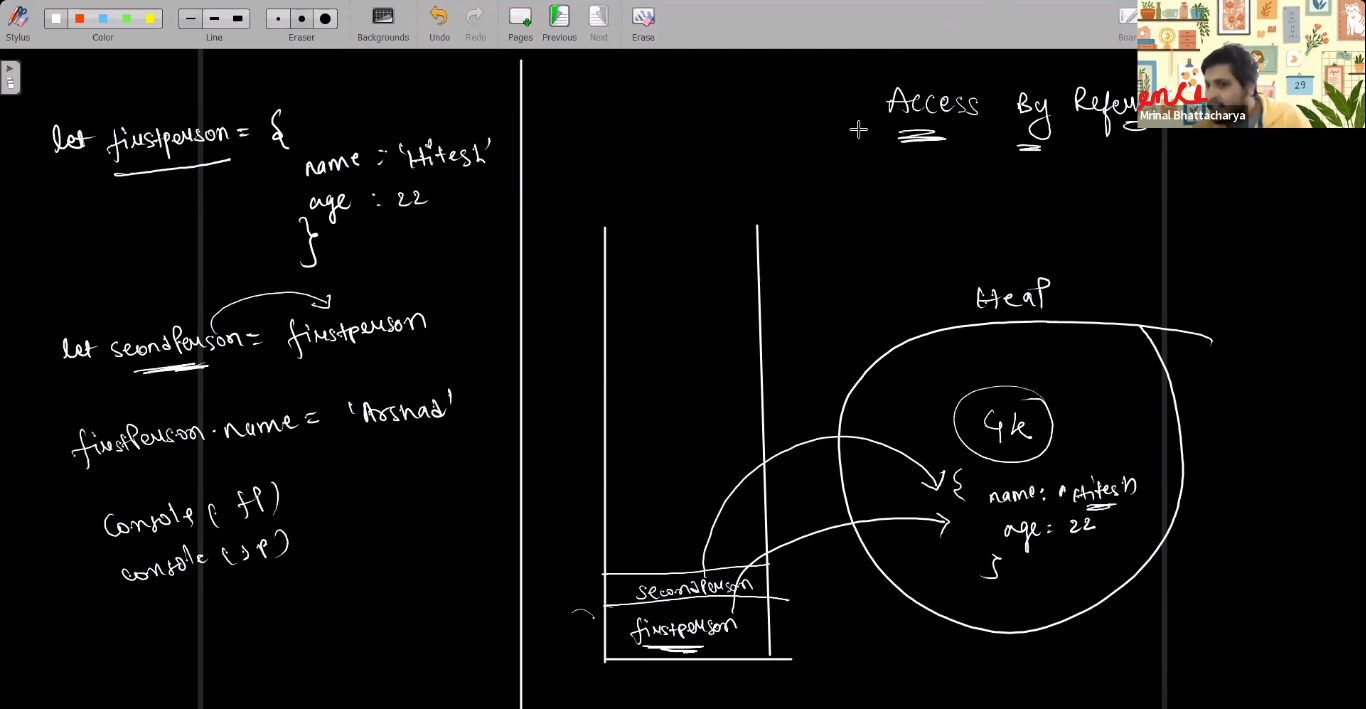 Stylus
Color
Line
Eraser
Backgrounds
Undo
Redo
Pages
Previous
Next
Erase
29
Mrinal Bhattacharya
Access By Reference
let firstperson = {
name : 'Hitesh'
age : 22
}
let seondPerson = firstperson
firstPerson.name = 'Arshad'
Console(. fp)
console(sp)
Heap
{
name: 'Hitesh
age = 22
}
secondPerson
firstperson